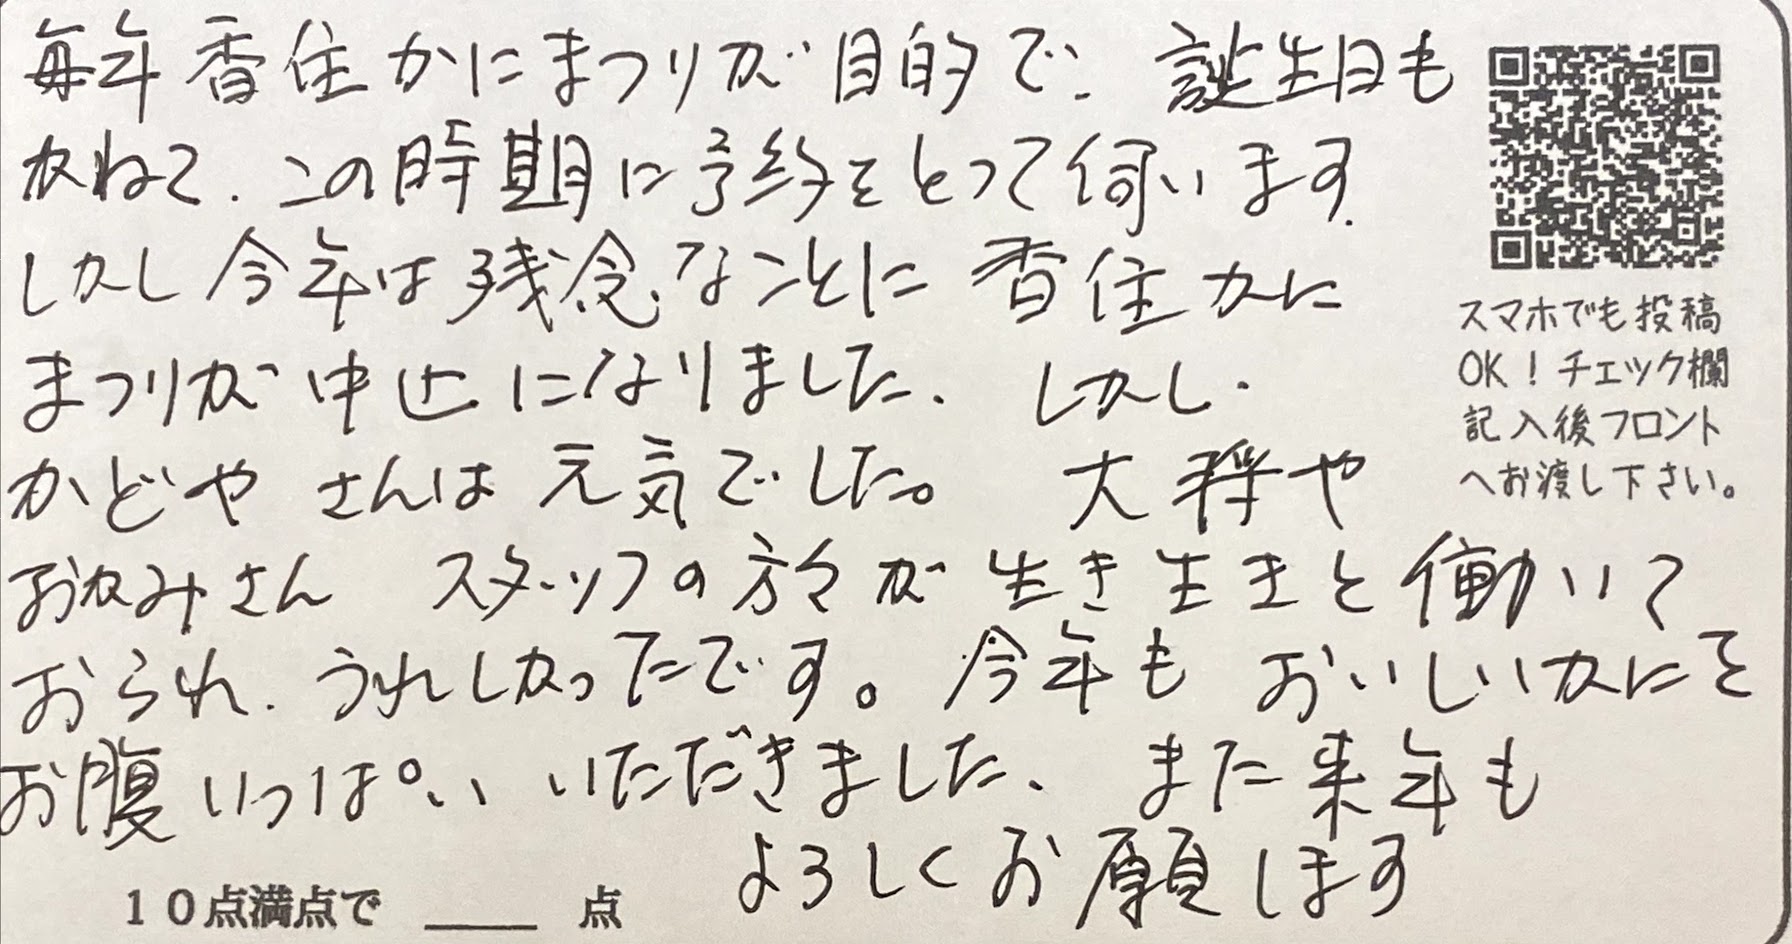 毎年香住かにまつりが目的で、誕生日も
かねて、この時期に予約をとって伺います。
しかし今年は残念なことに香住かに
まつりが中止になりました、しかし、
かどやさんは元気でした。大将や
おかみさん スタッフの方々が生き生きと働いて
おられ、うれしかったです。今年もおいしいかにを
お腹いっぱいいただきました、また来年も
よろしくお願します
スマホでも投稿
OK!チェック欄
記入後フロント
へお渡し下さい。
10点満点で ___ 点